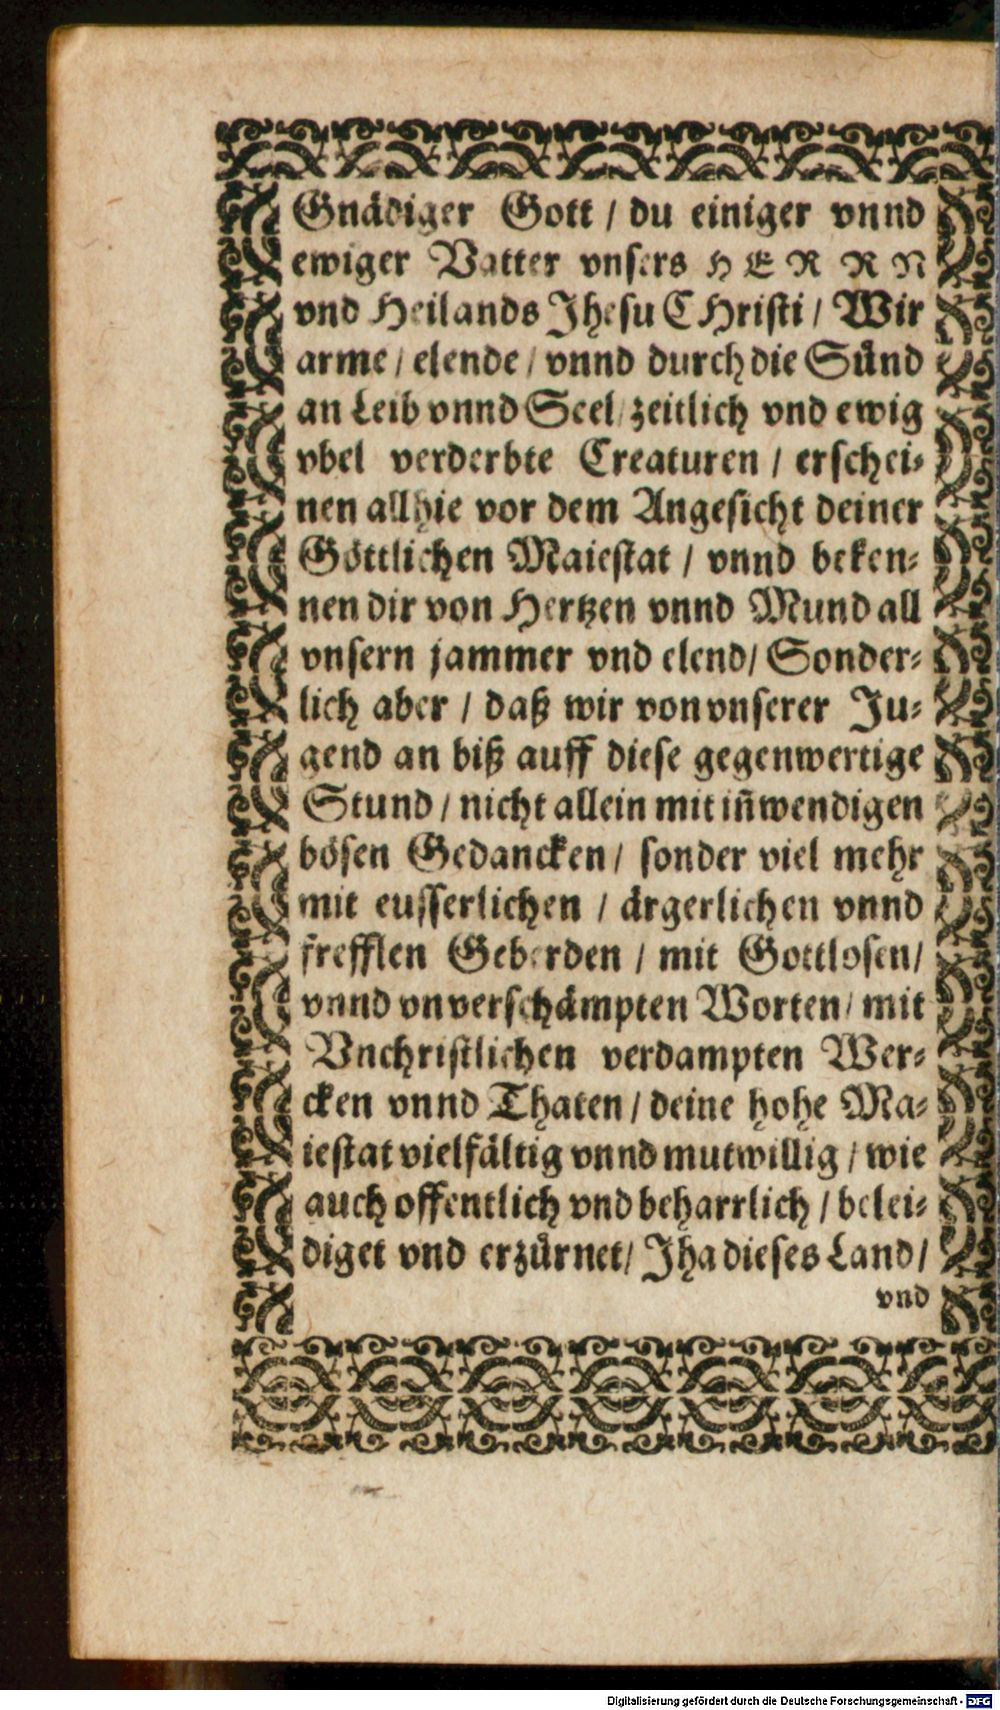 Gnädiger Gott / du einiger vnnd
ewiger Vatter vnsers HERRN
vnd Heilands Jhesu CHristi / Wir
arme / elende / vnnd durch die Sünd
an Leib vnnd Seel / zeitlich vnd ewig
vbel verderbte Creaturen / erschei-
nen allhie vor dem Angesicht deiner
Göttlichen Maiestat / vnnd beken-
nen dir von Hertzen vnnd Mund all
vnsern jammer vnd elend / Sonder-
lich aber / daß wir von vnserer Ju-
gend an biß auff diese gegenwertige
Stund / nicht allein mit iñwendigen
bösen Gedancken / sonder viel mehr
mit eusserlichen / ärgerlichen vnnd
frefflen Geberden / mit Gottlosen /
vnnd vnverschämpten Worten / mit
Vnchristlichen verdampten Wer-
cken vnnd Thaten / deine hohe Ma-
iestat vielfältig vnnd mutwillig / wie
auch offentlich vnd beharrlich / belei-
diget vnd erzürnet / Jha dieses Land /
vnd
Digitalisierung gefördert durch die Deutsche Forschungsgemeinschaft - DFG